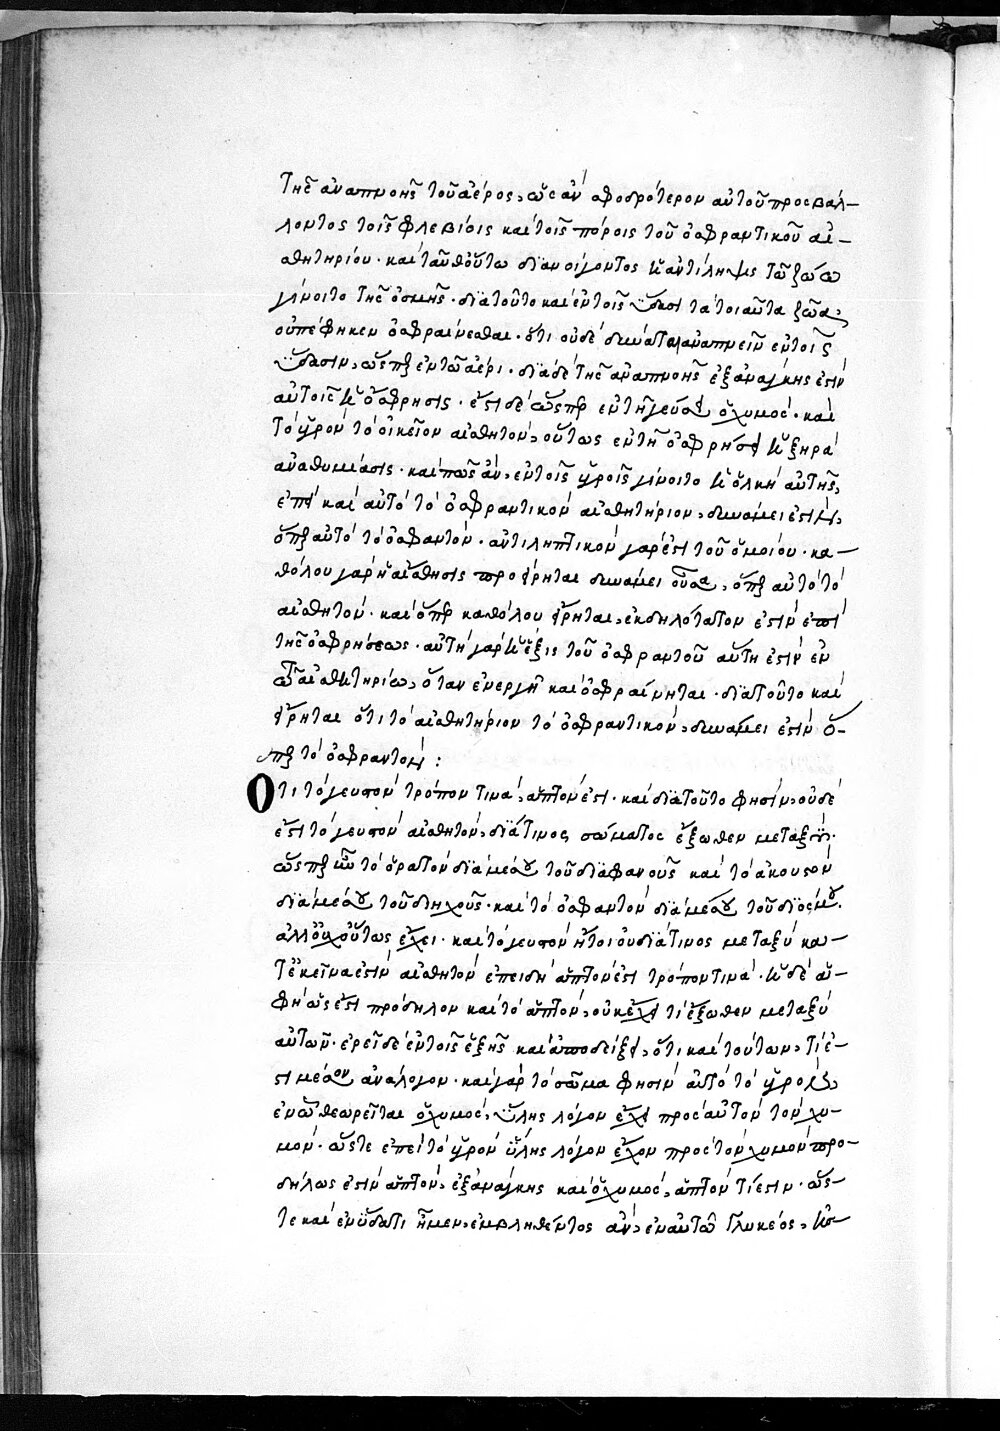 τῆς ἀναπνοῆς τοῦ ἀέρος, ὡς ἂν σφοδρότερον αὐτοῦ προσβάλ-
λοντος τοῖς φλεβίοις καὶ τοῖς πόροις τοῦ ὀσφραντικοῦ αἰ-
σθητηρίου· καὶ ταύτῃ οὕτω διανοίγοντος ἡ ἀντίληψις τῷ ζώῳ
γίνοιτο τῆς ὀσμῆς· διὰ τοῦτο καὶ ἐν τοῖς ὕδασι τὰ τοιαῦτα ζῶα,
οὐ πέφηκεν ὀσφραίνεσθαι· ὅτι οὐδὲ δύναται ἀναπνεῖν ἐν τοῖς
ὕδασιν, ὥσπερ ἐν τῷ ἀέρι· διὰ δὲ τῆς ἀναπνοῆς ἐξανάγκης ἐστὶν
αὐτοῖς ἡ ὄσφρησις· ἔστι δὲ ὥσπερ ἐν τῇ γεύσει ὁ χυμός· καὶ
τὸ ὑγρὸν τὸ οἰκεῖον αἰσθητόν, οὕτως ἐν τῇ ὀσφρήσει ἡ ξηρὰ
ἀναθυμίασις· καὶ πῶς ἂν, ἐν τοῖς ὑγροῖς γίνοιτο ἡ ὁλκὴ αὐτῆς,
ἐπεὶ καὶ αὐτὸ τὸ ὀσφραντικὸν αἰσθητήριον, δυνάμει ἐστὶν,
ὅπερ αὐτὸ τὸ ὀσφαντόν· ἀντιληπτικὸν γάρ ἐστι τοῦ ὁμοίου· κα-
θόλου γὰρ ἡ αἴσθησις προείρηται δυνάμει οὖσα, ὅπερ αὐτὸ τὸ
αἰσθητόν· καὶ ὅπερ καθόλου εἴρηται, ἐκδηλότατον ἐστὶν ἐπὶ
τῆς ὀσφρήσεως· αὐτὴ γὰρ ἡ ἕξις τοῦ ὀσφραντοῦ αὕτη ἐστὶν ἐν
τῷ αἰσθητηρίῳ, ὅταν ἐνεργῇ καὶ ὀσφραίνηται· διατοῦτο καὶ
εἴρηται ὅτι τὸ αἰσθητήριον τὸ ὀσφραντικόν, δυνάμει ἐστὶν ὅ-
περ τὸ ὀσφραντόν:
Ὅτι τὸ γευστὸν τρόπον τινά, ἁπτόν ἐστι· καὶ διατοῦτο φησὶν, οὐδέ
ἐστι τὸ γευστὸν αἰσθητόν, διά τινος σώματος ἔξωθεν μεταξύ·
ὥσπερ ἦν τὸ ὁρατὸν διὰ μέσου τοῦ διαφανοῦς καὶ τὸ ἀκουστὸν
διὰ μέσου τοῦ διηχοῦς· καὶ τὸ ὀσφαντὸν διὰ μέσου τοῦ διόσμου·
ἀλλ' οὐχ οὕτως ἔχει· καὶ τὸ γευστὸν ἤτοι οὐ διά τινος μεταξὺ κα-
τ' ἐκεῖνα ἐστὶν αἰσθητὸν ἐπειδὴ ἁπτόν ἐστι τρόπον τινά· ἡ δὲ ἁ-
φὴ ὥς ἐστι πρόδηλον καὶ τὸ ἁπτόν, οὐκ ἔχει τι ἔξωθεν μεταξὺ
αὐτῶν· ἐρεῖ δὲ ἐν τοῖς ἑξῆς καὶ ἀποδείξει, ὅτι καὶ τούτων, τί ἐ-
στι μέσον ἀνάλογον· καὶ γὰρ τὸ σῶμα φησὶν αὐτὸ τὸ ὑγρόν,
ἐν ᾧ θεωρεῖται ὁ χυμός, ὕλης λόγον ἔχει πρὸς αὐτὸν τὸν χυ-
μόν· ὥστε ἐπεὶ τὸ ὑγρὸν ὕλης λόγον ἔχον πρὸς τὸν χυμὸν προ-
δήλως ἐστὶν ἁπτόν, ἐξανάγκης καὶ ὁ χυμός, ἁπτόν τί ἐστιν· ὥσ-
τε καὶ ἐν ὕδατι ἦμεν, ἐμβληθέντος ἂν, ἐν αὐτῷ γλυκέος, ἡ